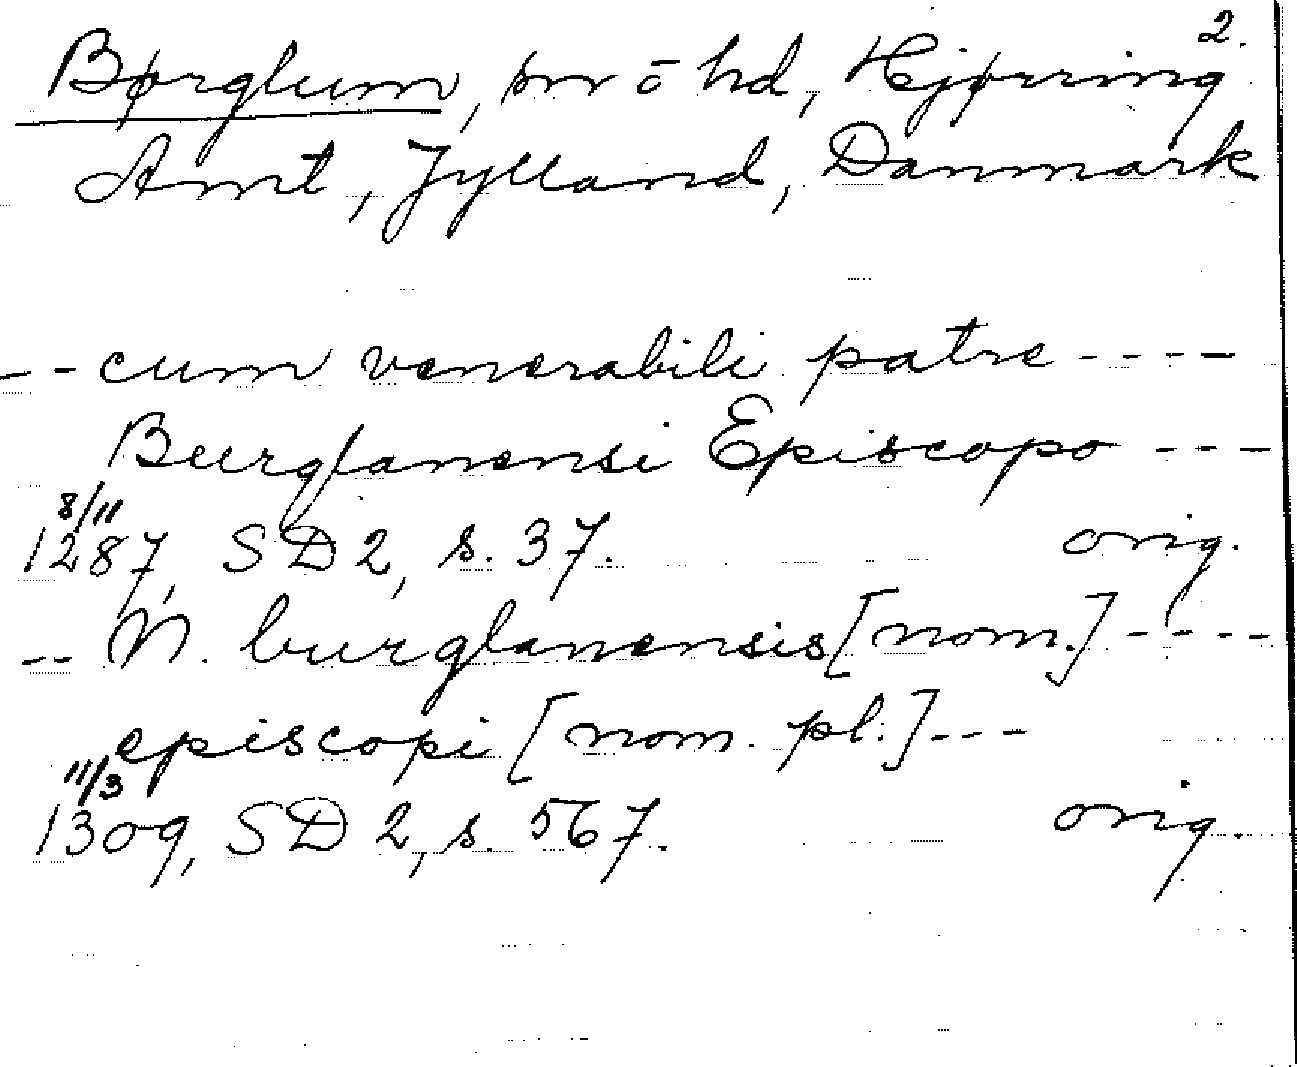 2.
Børglum, sn o hd, Hjørring
Amt, Jylland, Danmark
-- cum venerabili patre ----
Burglanensi Episcopo ---
8/11
1287, SD 2, s. 37. orig.
-- N. burglanensis [nom.] ----
episcopi [nom. pl.] ---
11/3
1309, SD 2, s. 567. orig.